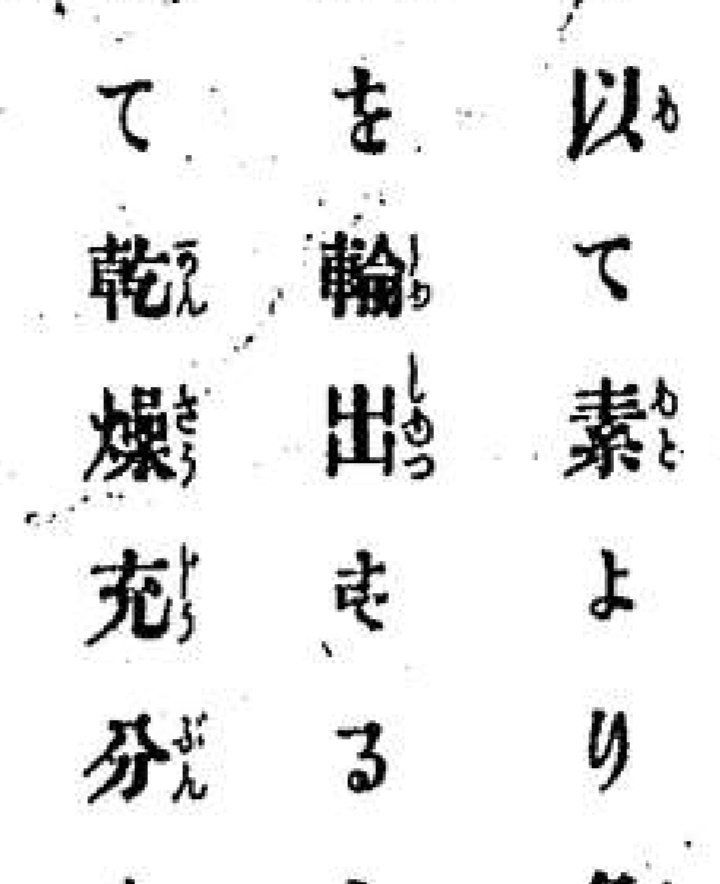 以て素より
を輸出する
て乾燥充分